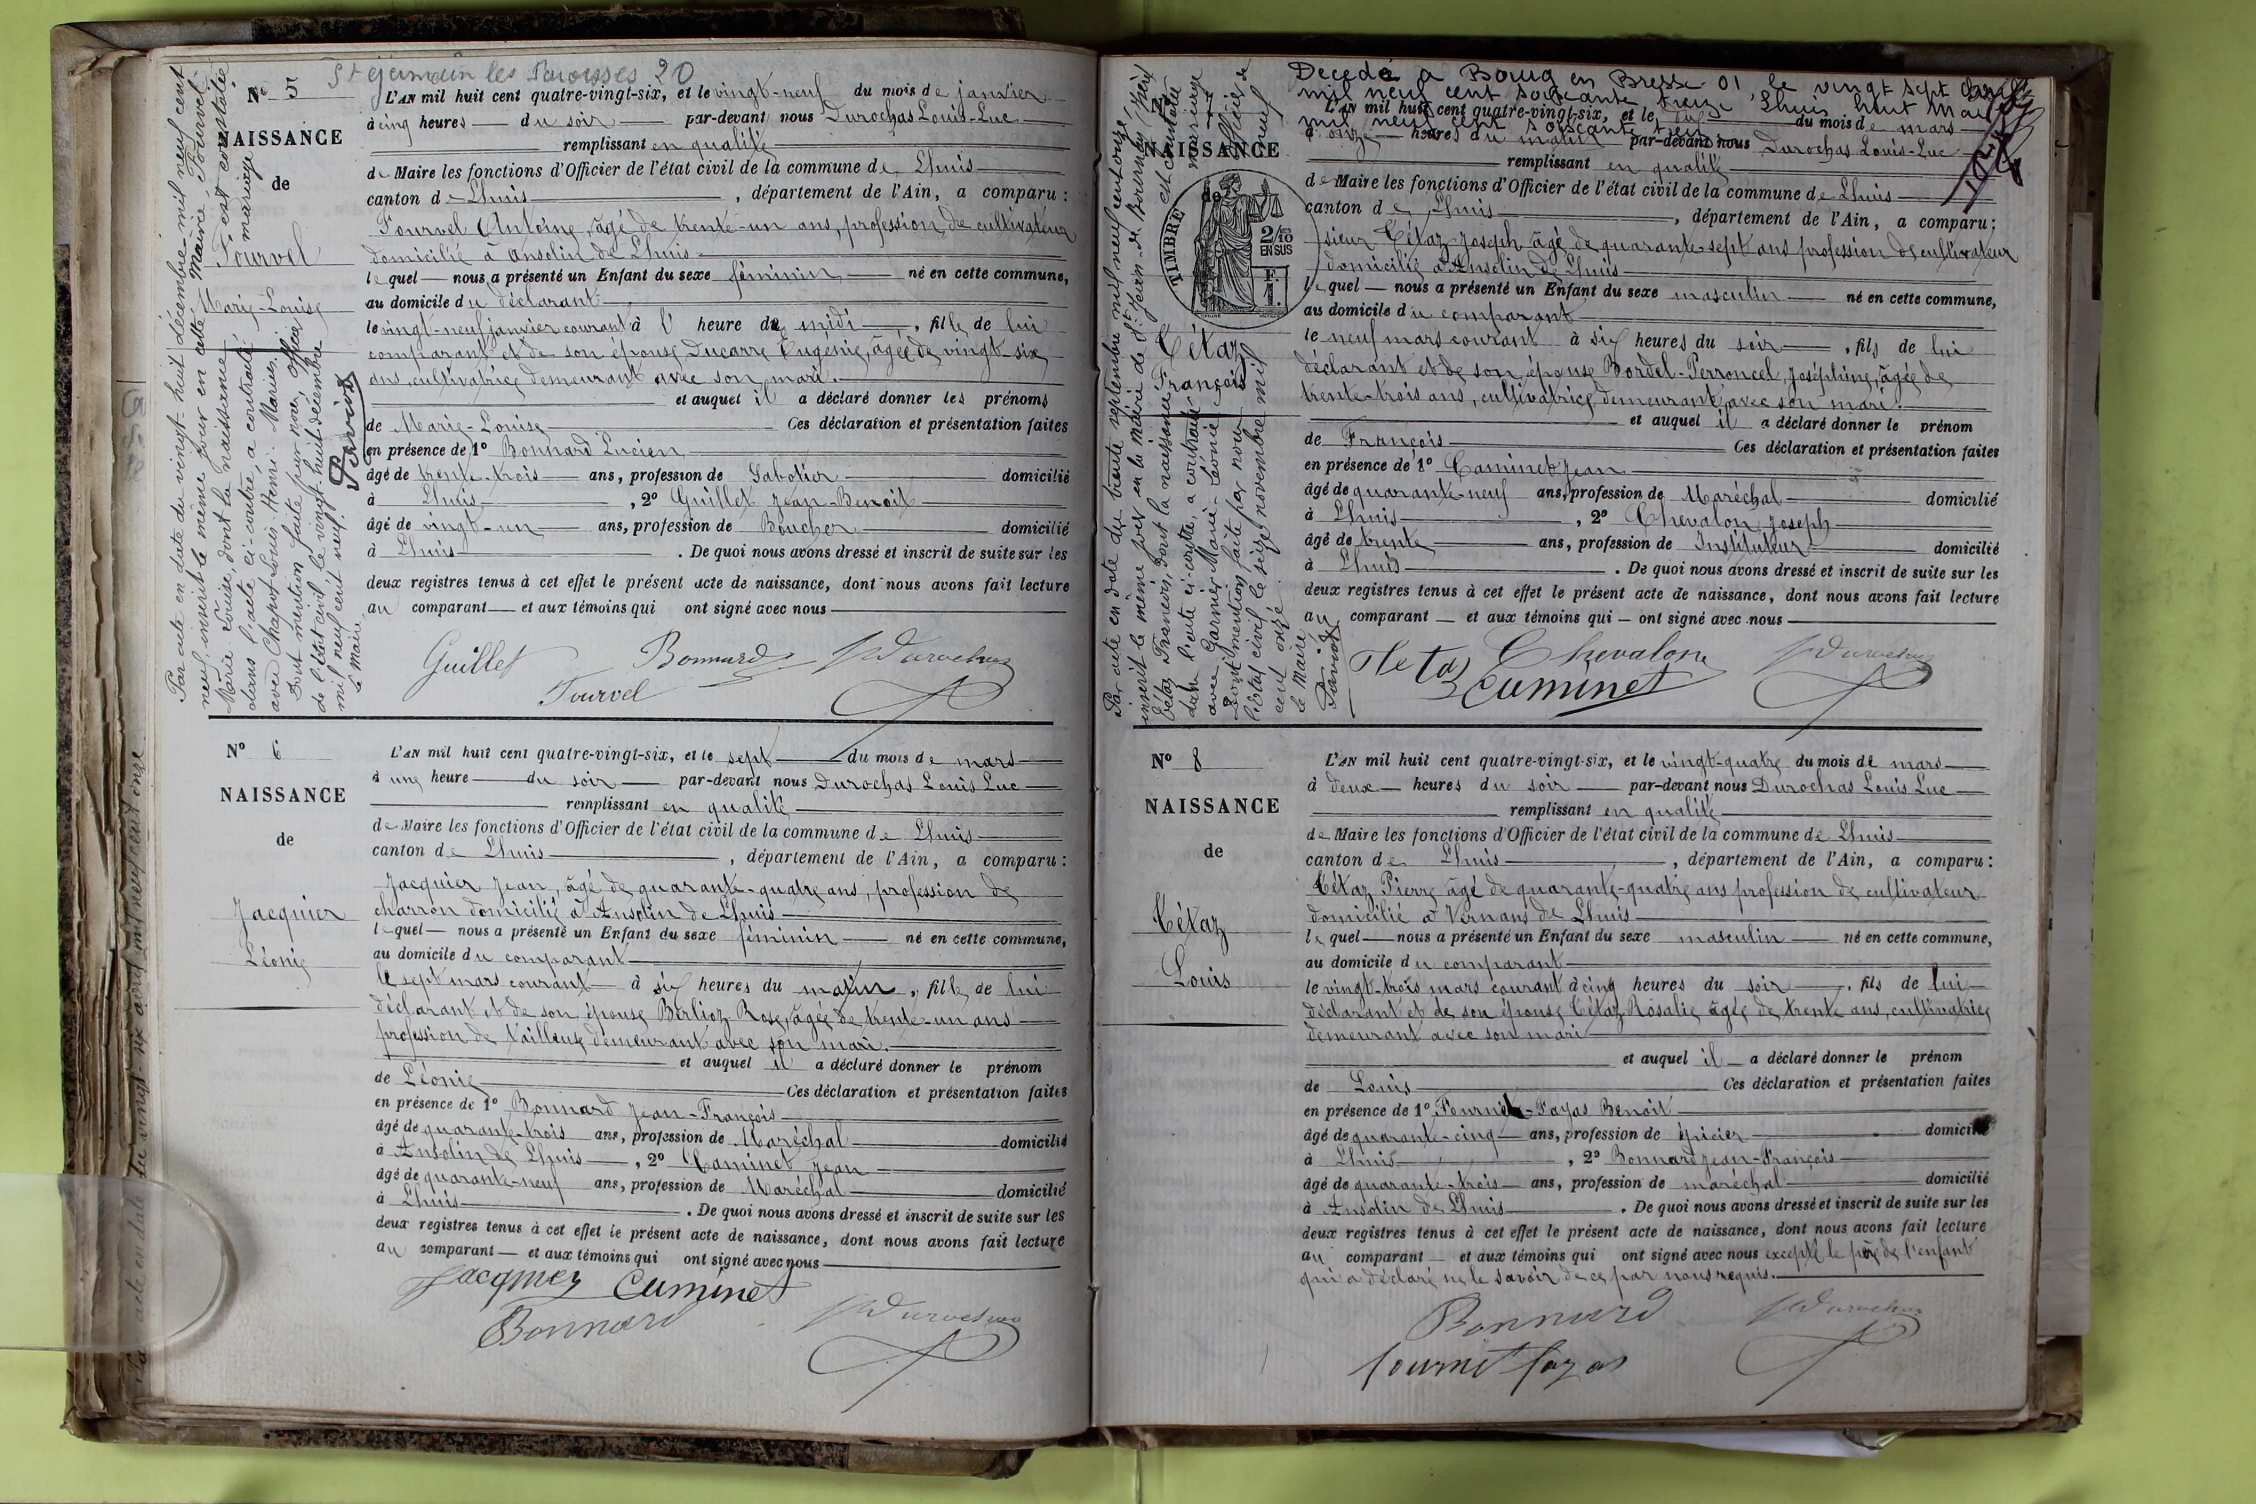 St Germain les Paroisses 20
N° 5
NAISSANCE
de
Tournel
Marie-Louise
L'AN mil huit cent quatre-vingt-six, et le vingt-neuf du mois de janvier
à cinq heures du soir par-devant nous Durochas Louis-Luc
remplissant en qualité
de Maire les fonctions d'Officier de l'état civil de la commune de Lhuis
canton de Lhuis, département de l'Ain, a comparu :
Antoine, âgé de trente-un ans, profession de cultivateur
domicilié à Ansolin de Lhuis
lequel nous a présenté un Enfant du sexe féminin né en cette commune,
au domicile du déclarant
le vingt-neuf janvier courant à l' heure de midi, fille de lui
comparant et de son épouse Ducarre Eugénie, âgée de vingt six
ans, cultivatrice demeurant avec son mari.
et auquel il a déclaré donner les prénoms
de Marie-Louise Ces déclaration et présentation faites
en présence de 1° Bonnard Lucien
âgé de trente-trois ans, profession de Sabotier domicilié
à Lhuis, 2° Guillet Jean-Benoit
âgé de vingt-un ans, profession de Boucher domicilié
à Lhuis. De quoi nous avons dressé et inscrit de suite sur les
deux registres tenus à cet effet le présent acte de naissance, dont nous avons fait lecture
au comparant et aux témoins qui ont signé avec nous
Guillet Bonnard Durochas
Par acte en date du vingt-huit décembre mil neuf cent
neuf, inscrit le même jour en cette Mairie,
Marie Louise, dont la naissance est constatée
dans l'acte ci-contre, a contracté mariage
avec Chapot Louis Henri.
Dont mention faite par nous, officier
de l'état civil le vingt-huit décembre
mil neuf cent neuf.
Le Maire,
N° 6
NAISSANCE
de
Jacquier
Léonie
L'AN mil huit cent quatre-vingt-six, et le sept du mois de mars
à une heure du soir par-devant nous Durochas Louis Luc
remplissant en qualité
de Maire les fonctions d'Officier de l'état civil de la commune de Lhuis
canton de Lhuis, département de l'Ain, a comparu :
Jacquier Jean, âgé de quarante-quatre ans, profession de
charron domicilié à Ansolin de Lhuis
lequel nous a présenté un Enfant du sexe féminin né en cette commune,
au domicile du comparant
le sept mars courant à six heures du matin, fille de lui
déclarant et de son épouse Berlioz Rose, âgée de trente-un ans
profession de tailleuse demeurant avec son mari.
et auquel il a déclaré donner le prénom
de Léonie Ces déclaration et présentation faites
en présence de 1° Bonnard Jean-François
âgé de quarante-trois ans, profession de Maréchal domicilié
à Ansolin de Lhuis, 2° Caminet Jean
âgé de quarante-neuf ans, profession de Maréchal domicilié
à Lhuis. De quoi nous avons dressé et inscrit de suite sur les
deux registres tenus à cet effet le présent acte de naissance, dont nous avons fait lecture
au comparant et aux témoins qui ont signé avec nous
Jacquier Caminet
Bonnard Durochas
Décédé à Bourg en Bresse 01, le vingt sept
mil neuf cent soixante treize Lhuis huit Mai
mil neuf cent soixante treize
NAISSANCE
de
TIMBRE
2/10 EN SUS
Tétaz
François
L'AN mil huit cent quatre-vingt-six, et le dix du mois de mars
à onze heures du matin par-devant nous Durochas Louis-Luc
remplissant en qualité
de Maire les fonctions d'Officier de l'état civil de la commune de Lhuis
canton de Lhuis, département de l'Ain, a comparu :
sieur Tétaz Joseph âgé de quarante-sept ans profession de cultivateur
domicilié à Ansolin de Lhuis
lequel nous a présenté un Enfant du sexe masculin né en cette commune,
au domicile du comparant
le neuf mars courant à six heures du soir, fils de lui
déclarant et de son épouse Bordel-Perroncel, Joséphine, âgée de
trente-trois ans, cultivatrice demeurant avec son mari.
et auquel il a déclaré donner le prénom
de François Ces déclaration et présentation faites
en présence de 1° Caminet Jean
âgé de quarante-neuf ans, profession de Maréchal domicilié
à Lhuis, 2° Chevalon Joseph
âgé de trente ans, profession de Instituteur domicilié
à Lhuis. De quoi nous avons dressé et inscrit de suite sur les
deux registres tenus à cet effet le présent acte de naissance, dont nous avons fait lecture
au comparant et aux témoins qui ont signé avec nous
Tetaz Chevalon Durochas
Caminet
Par acte en date du trente septembre mil neuf cent onze,
inscrit le même jour en la mairie de
Tétaz François, dont la naissance est constatée
dans l'acte ci-contre, a contracté mariage
avec Garnier Marie-Léonie
Dont mention faite par nous officier de
l'état civil le seize novembre mil neuf
cent onze
Le Maire
N° 8
NAISSANCE
de
Tétaz
Louis
L'AN mil huit cent quatre-vingt-six, et le vingt-quatre du mois de mars
à deux heures du soir par-devant nous Durochas Louis Luc
remplissant en qualité
de Maire les fonctions d'Officier de l'état civil de la commune de Lhuis
canton de Lhuis, département de l'Ain, a comparu :
Tétaz Pierre âgé de quarante-quatre ans profession de cultivateur
domicilié à Vernans de Lhuis
lequel nous a présenté un Enfant du sexe masculin né en cette commune,
au domicile du comparant
le vingt-trois mars courant à cinq heures du soir, fils de lui
déclarant et de son épouse Tétaz Rosalie âgée de trente ans, cultivatrice
demeurant avec son mari
et auquel il a déclaré donner le prénom
de Louis Ces déclaration et présentation faites
en présence de 1° Fournet-Fayas Benoit
âgé de quarante-cinq ans, profession de épicier domicilié
à Lhuis, 2° Bonnard Jean-François
âgé de quarante-trois ans, profession de maréchal domicilié
à Ansolin de Lhuis. De quoi nous avons dressé et inscrit de suite sur les
deux registres tenus à cet effet le présent acte de naissance, dont nous avons fait lecture
au comparant et aux témoins qui ont signé avec nous excepté le père de l'enfant
qui a déclaré ne le savoir de ce par nous requis.
Bonnard Durochas
Fournet Fayas